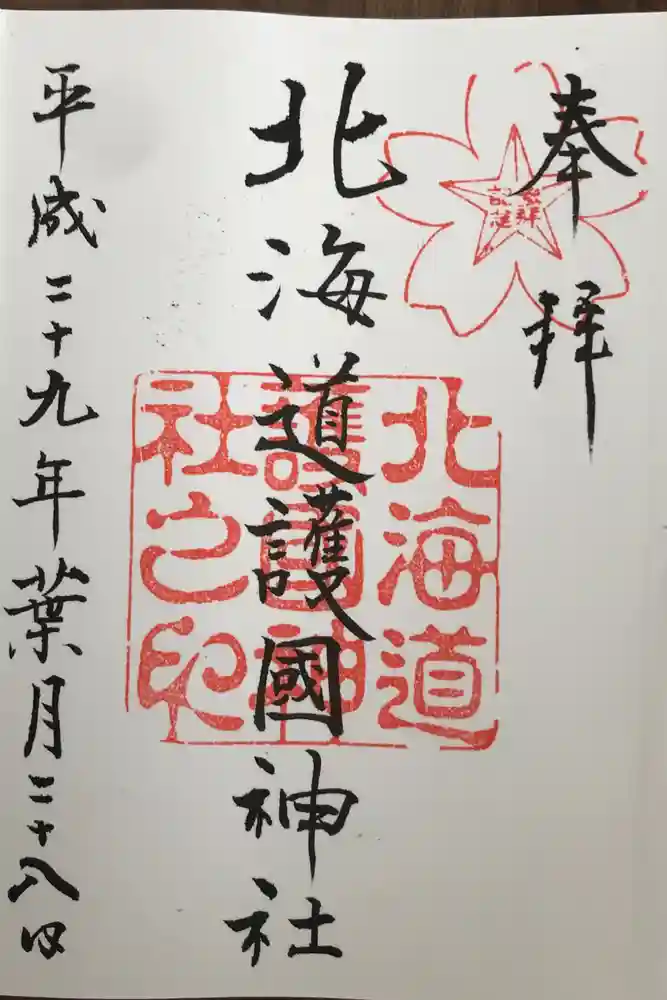 奉拝
参拝
記念
北海道護國神社
北海道
護國神
社之印
平成二十九年葉月二十八日